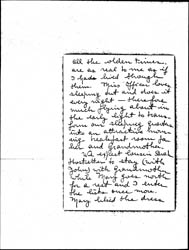 all the olden times,
are as real to me as if
I had lived through
them. Miss Officer loves
sleeping out and does it
every night — therefore
much flying about in
the early light to trans-
form our sleeping garden
into an attractive morn-
ing breakfast room for
her and Grandmother.
We expect Cousin
Hostetter to stay (with
John) with Grandmother
while Mary goes north
for a rest and I enter
the lists once more.
Mary liked the dress